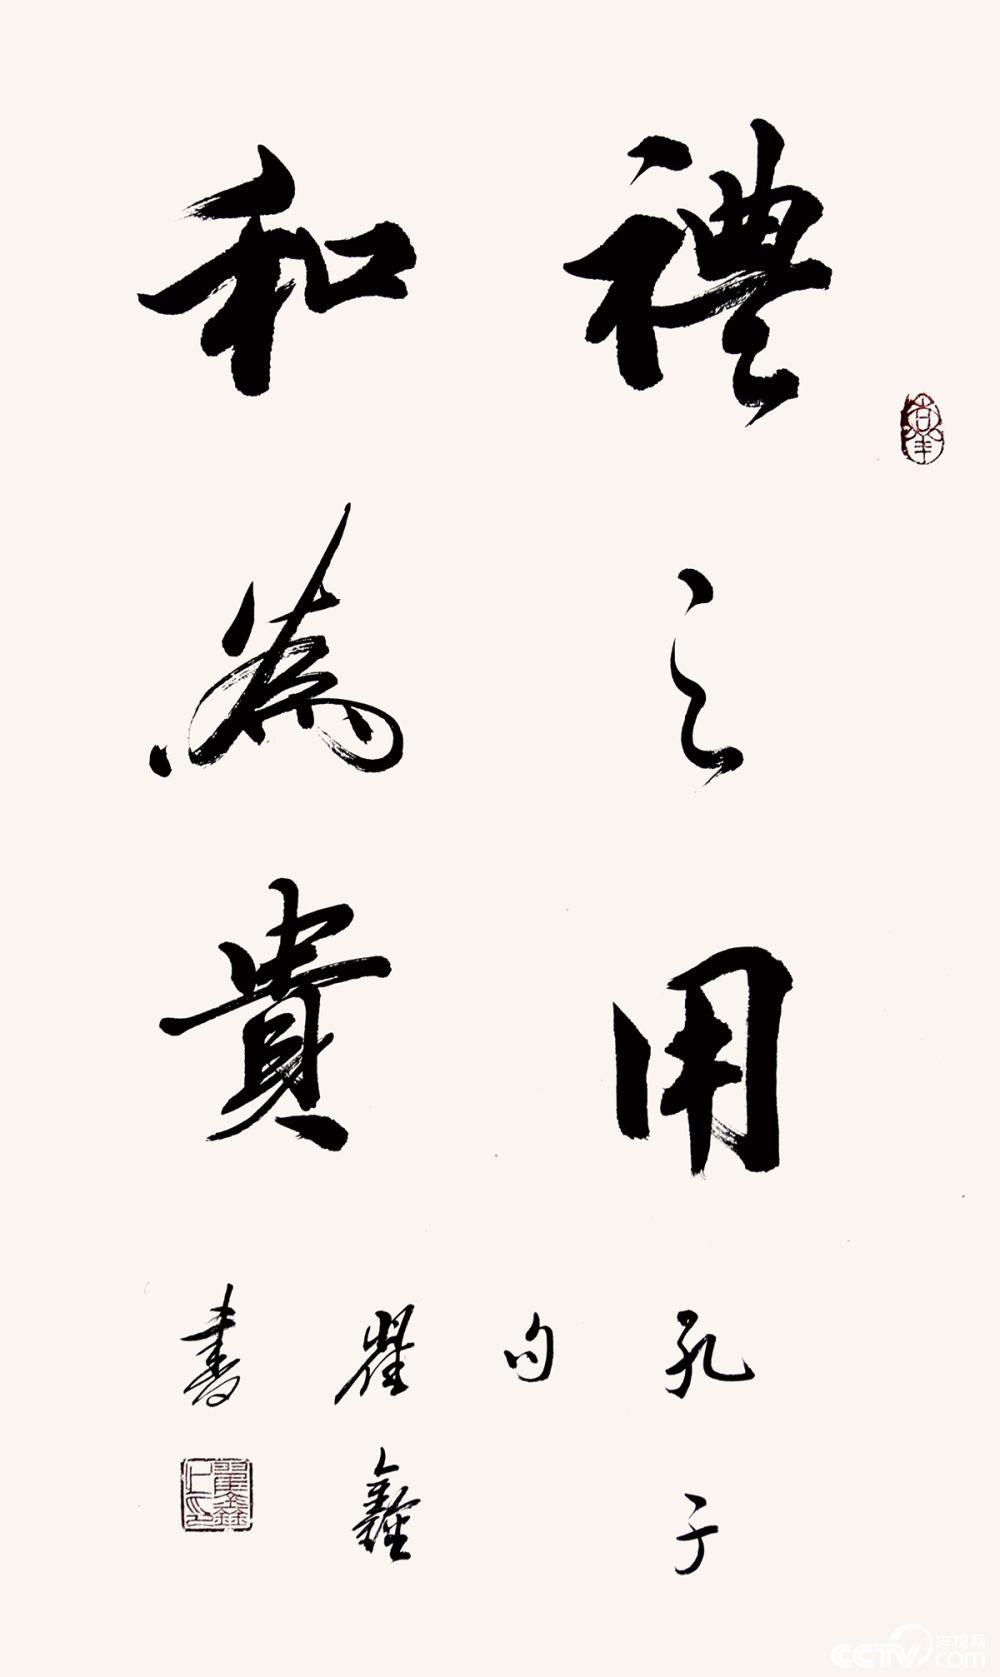 禮之用
和為貴
孔子
句
瞿鑫
書
央视网
CCTV.com